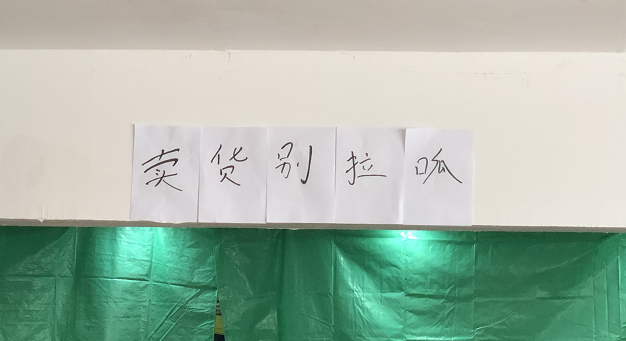 卖货别拉呱